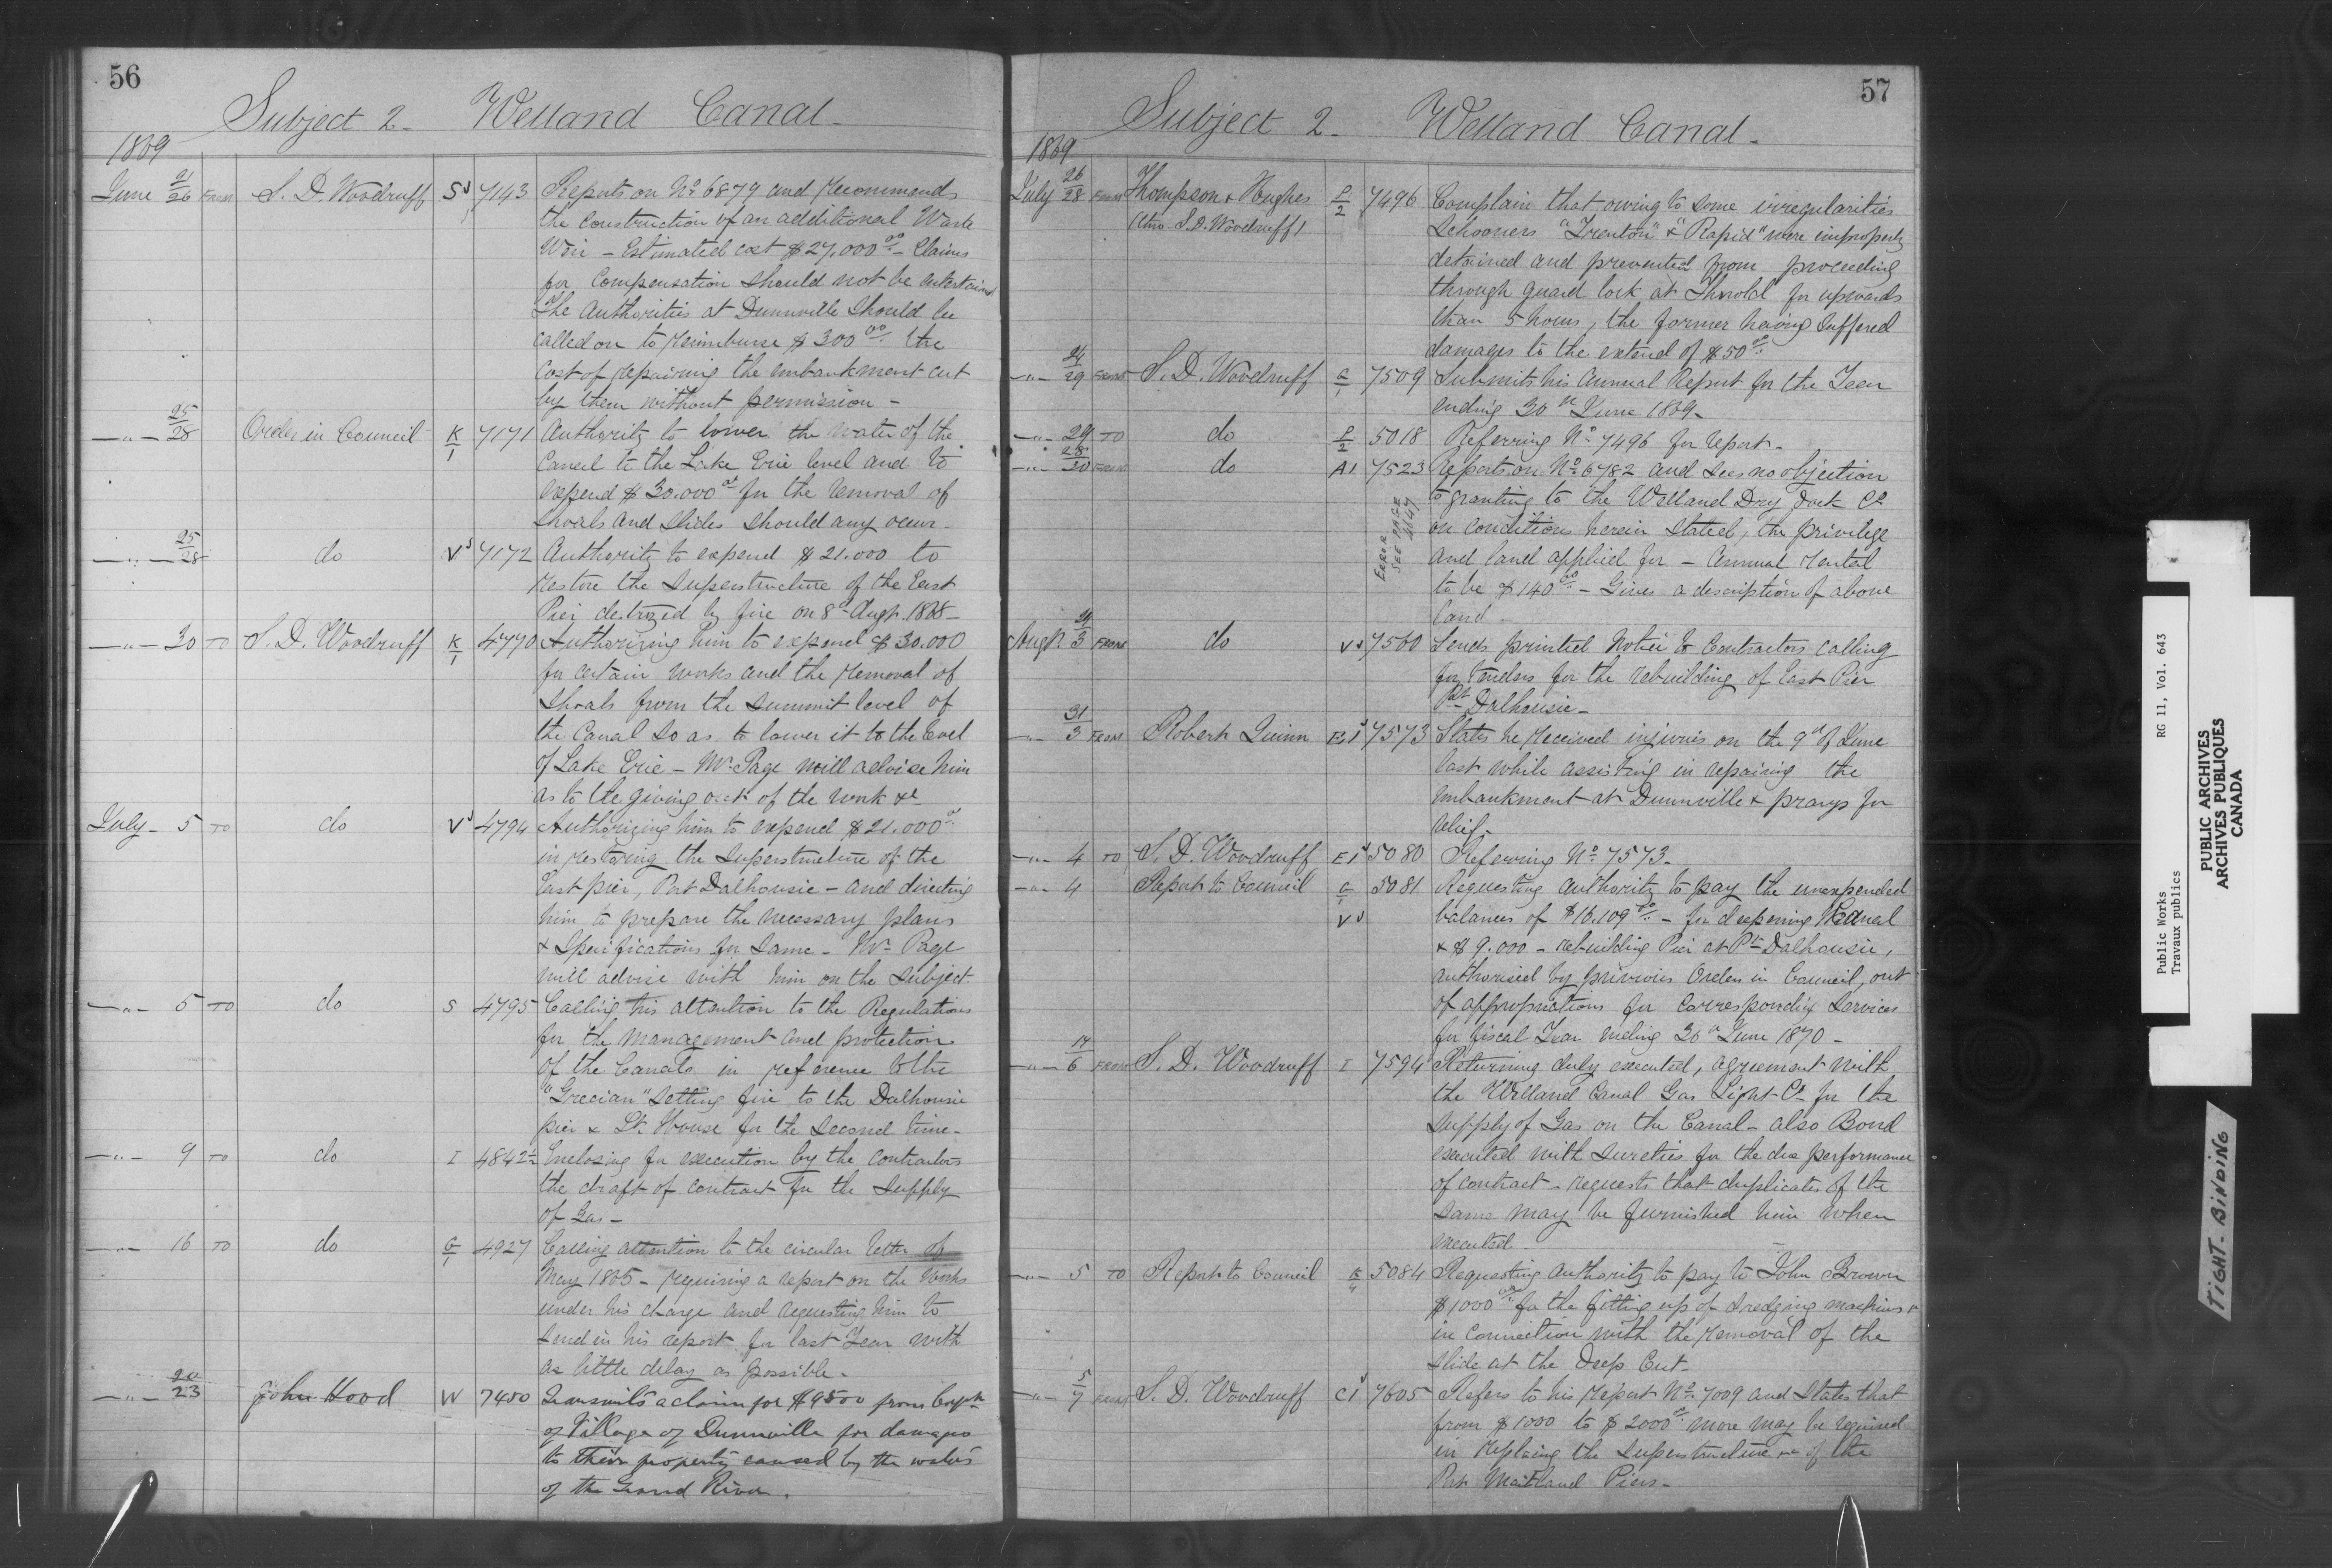 56
Subject 2. Welland Canal.
1869
June 21/26 From S. D. Woodruff S 7143 Reports on No 6879 and recommends
the construction of an additional Waste
Weir – Estimated cost $27,000 00 – Claims
for Compensation should not be entertained
The Authorities at Dunnville should be
called on to reimburse $300 00 the
cost of repairing the embankment cut
by them without permission –
–"– 25/28 Order in Council K/1 7171 Authority to lower the water of the
Canal to the Lake Erie level and to
expend $30.000 for the removal of
shoals and slides should any occur.
–"– 25/28 do V 7172 Authority to expend $21.000 to
restore the superstructure of the East
Pier destroyed by fire on 8th Augt. 1868 –
–"– 30 TO S. D. Woodruff K/1 4770 Authorizing him to expend $30.000
for certain works and the removal of
shoals from the summit level of
the Canal so as to lower it to the level
of Lake Erie – Mr Page will advise him
as to the giving out of the work &c
July – 5 TO do V 4794 Authorizing him to expend $21.000
in restoring the superstructure of the
East pier, Port Dalhousie – and directing
him to prepare the necessary plans
& Specifications for same – Mr Page
will advise with him on the subject.
–"– 5 TO do S 4795 Calling his attention to the Regulations
for the management and protection
of the Canals in reference to the
"Grecian" setting fire to the Dalhousie
pier & Lt House for the second time –
–"– 9 TO do I 4842½ Enclosing for execution by the contractors
the draft of contract for the supply
of Gas –
–"– 16 TO do G/1 4927 Calling attention to the circular letter of
May 1865 – requiring a report on the works
under his charge and requesting him to
send in his report for last Year with
as little delay as possible.
–"– 20/23 John Hood W 7450 Transmits a claim for $9500 from Corptn
of Village of Dunnville for damages
to their property caused by the waters
of the Grand River.
57
Subject 2. Welland Canal.
1869
July 26/28 From Thompson & Hughes P/2 7496 Complain that owing to some irregularities
(thro S. D. Woodruff) Schooners "Trenton" & "Rapid" were improperly
detained and prevented from proceeding
through guard lock at Thorold for upwards
than 5 hours, the former having suffered
damages to the extend of $50 00
–"– 24/29 From S. D. Woodruff G/1 7509 Submits his Annual Report for the Year
ending 30th June 1869 –
–"– 29 TO do P/2 5018 Referring No 7496 for report –
–"– 28/30 From do A1 7523 Reports on No 6782 and sees no objection
to granting to the Welland Dry Dock Co
on conditions herein stated, the privilege
and land applied for – Annual rental
to be $140 00 – Gives a description of above
land –
ERROR
SEE PAGE
4647
Augt 31/3 From do V 7560 Sends printed Notice to Contractors calling
for Tenders for the rebuilding of East Pier
Pt Dalhousie –
–"– 31/3 From Robert Quinn E1 7573 States he received injuries on the 9th of June
last while assisting in repairing the
embankment at Dunnville & prays for
relief –
–"– 4 TO S. D. Woodruff E1 5080 Referring No 7573 –
–"– 4 Report to Council G/1 5081 Requesting authority to pay the unexpended
V balances of $16.109 – for deepening W Canal
& $9.000 – rebuilding Pier at Pt Dalhousie,
authorised by previous Orders in Council, out
of appropriations for corresponding services
for fiscal Year ending 30th June 1870 –
–"– 14/6 From S. D. Woodruff I 7594 Returning duly executed, agreement with
the Welland Canal Gas Light Co for the
supply of Gas on the Canal – also Bond
executed with sureties for the due performance
of contract – requests that duplicates of the
same may be furnished him when
executed –
–"– 5 TO Report to Council K/4 5084 Requesting authority to pay to John Brown
$1000 for the fitting up of dredging machines &
in connection with the removal of the
slide at the Deep Cut –
–"– 5/7 From S. D. Woodruff C1 7605 Refers to his report No 7009 and states that
from $1000 to $2000 more may be required
in replacing the superstructure of the
Port Maitland Piers –
Public Works RG 11, Vol. 643
Travaux publics
PUBLIC ARCHIVES
ARCHIVES PUBLIQUES
CANADA
TIGHT BINDING